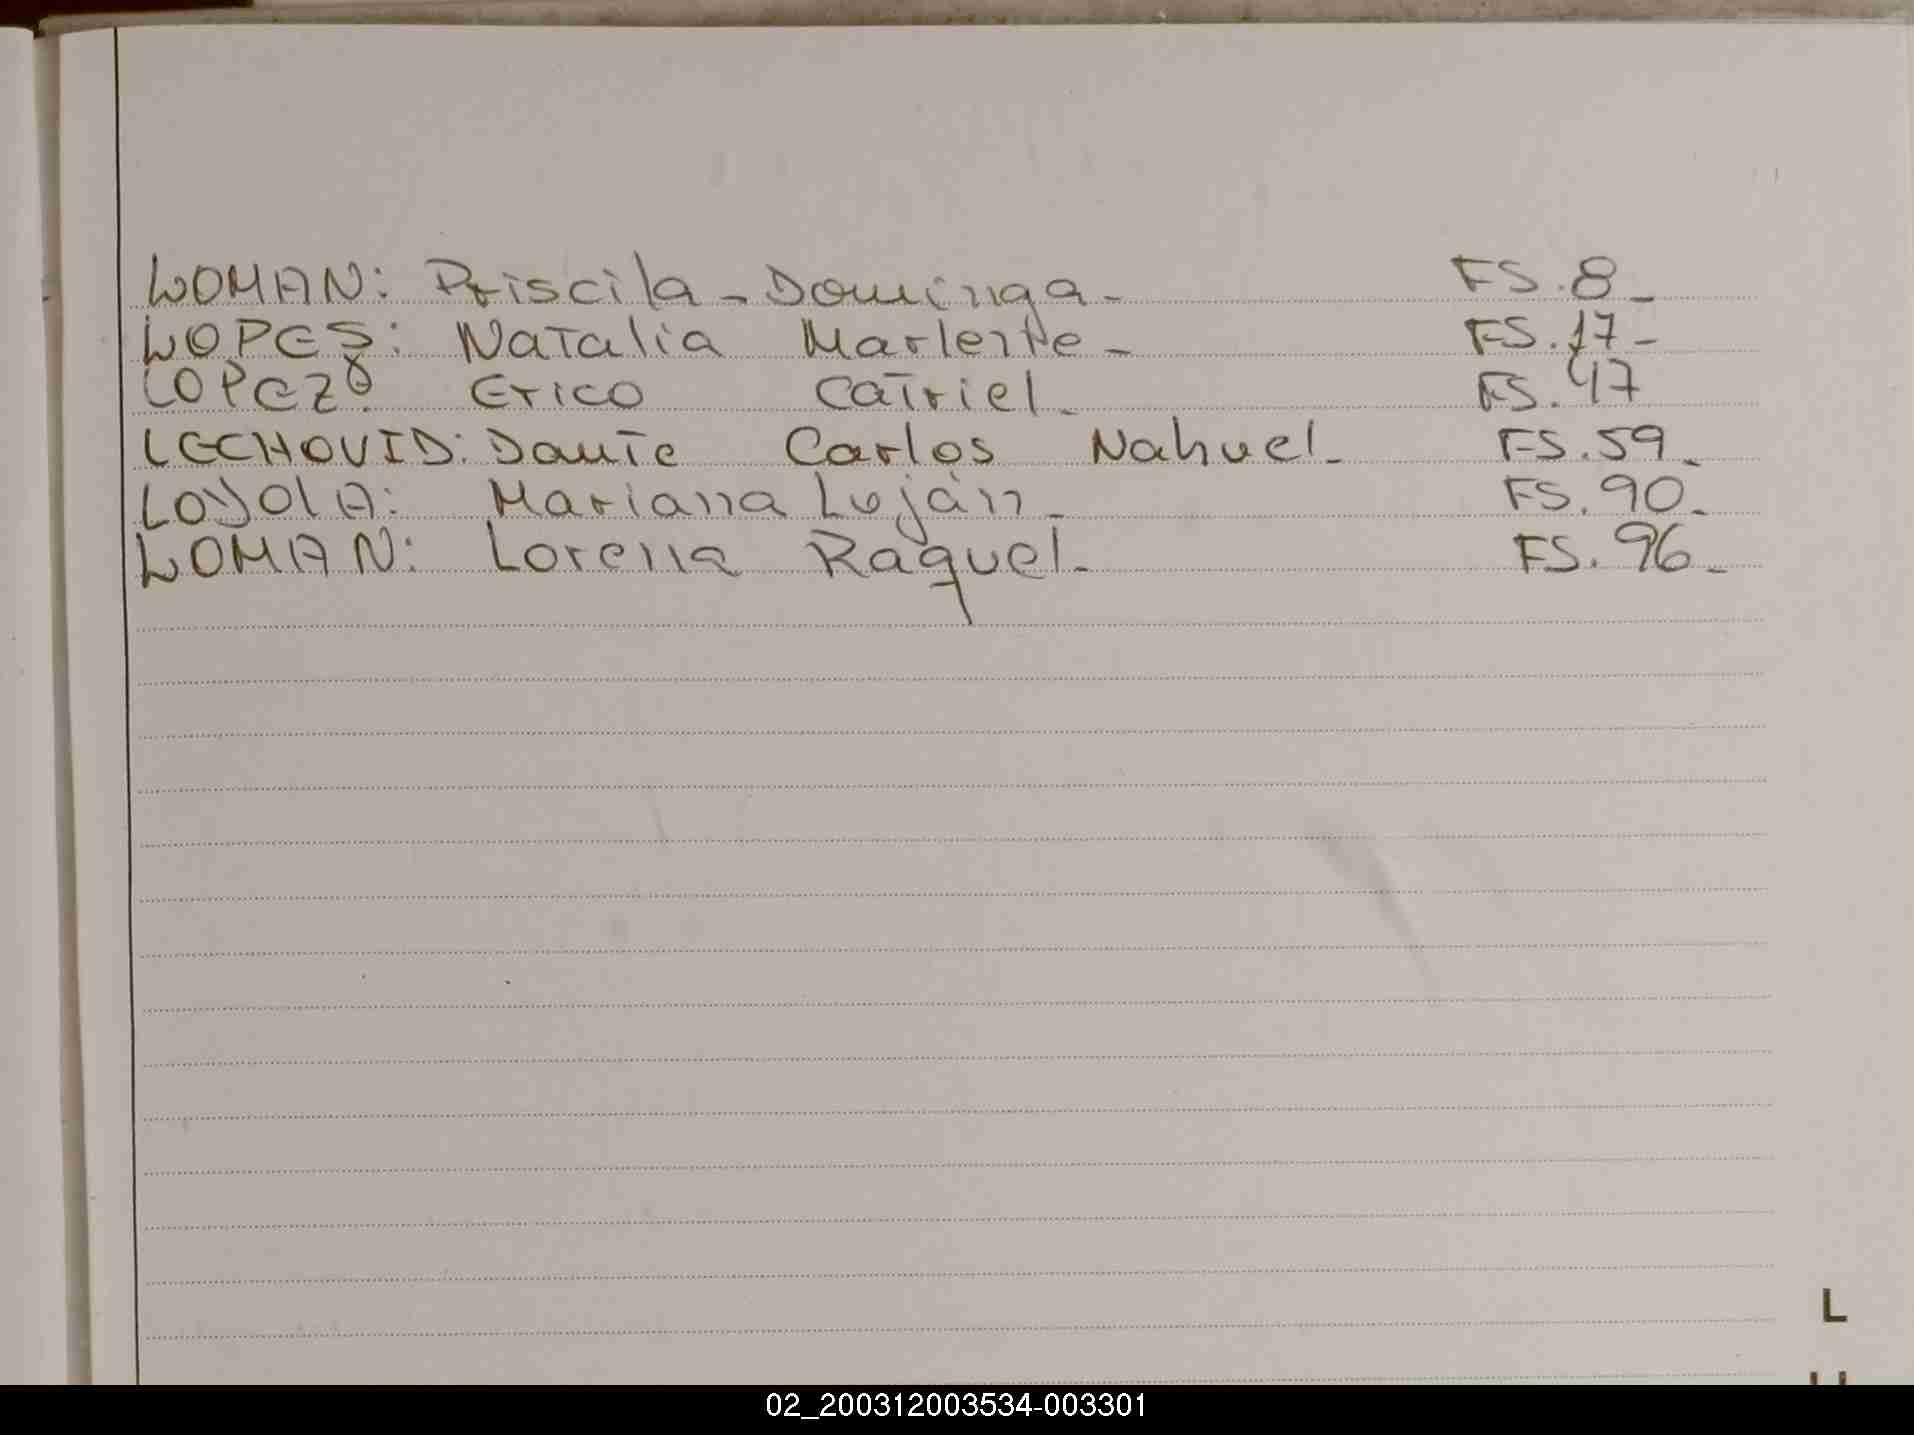 LOMAN: Priscila - Dominga - FS. 8 -
LOPES: Natalia Marlene - FS. 17 -
LOPEZ: Erico Catriel - FS. 47
LECHOVID: Dante Carlos Nahuel - FS. 59 -
LOYOLA: Mariana Luján - FS. 90 -
LOMAN: Lorena Raquel - FS. 96 -
L
02_200312003534-003301